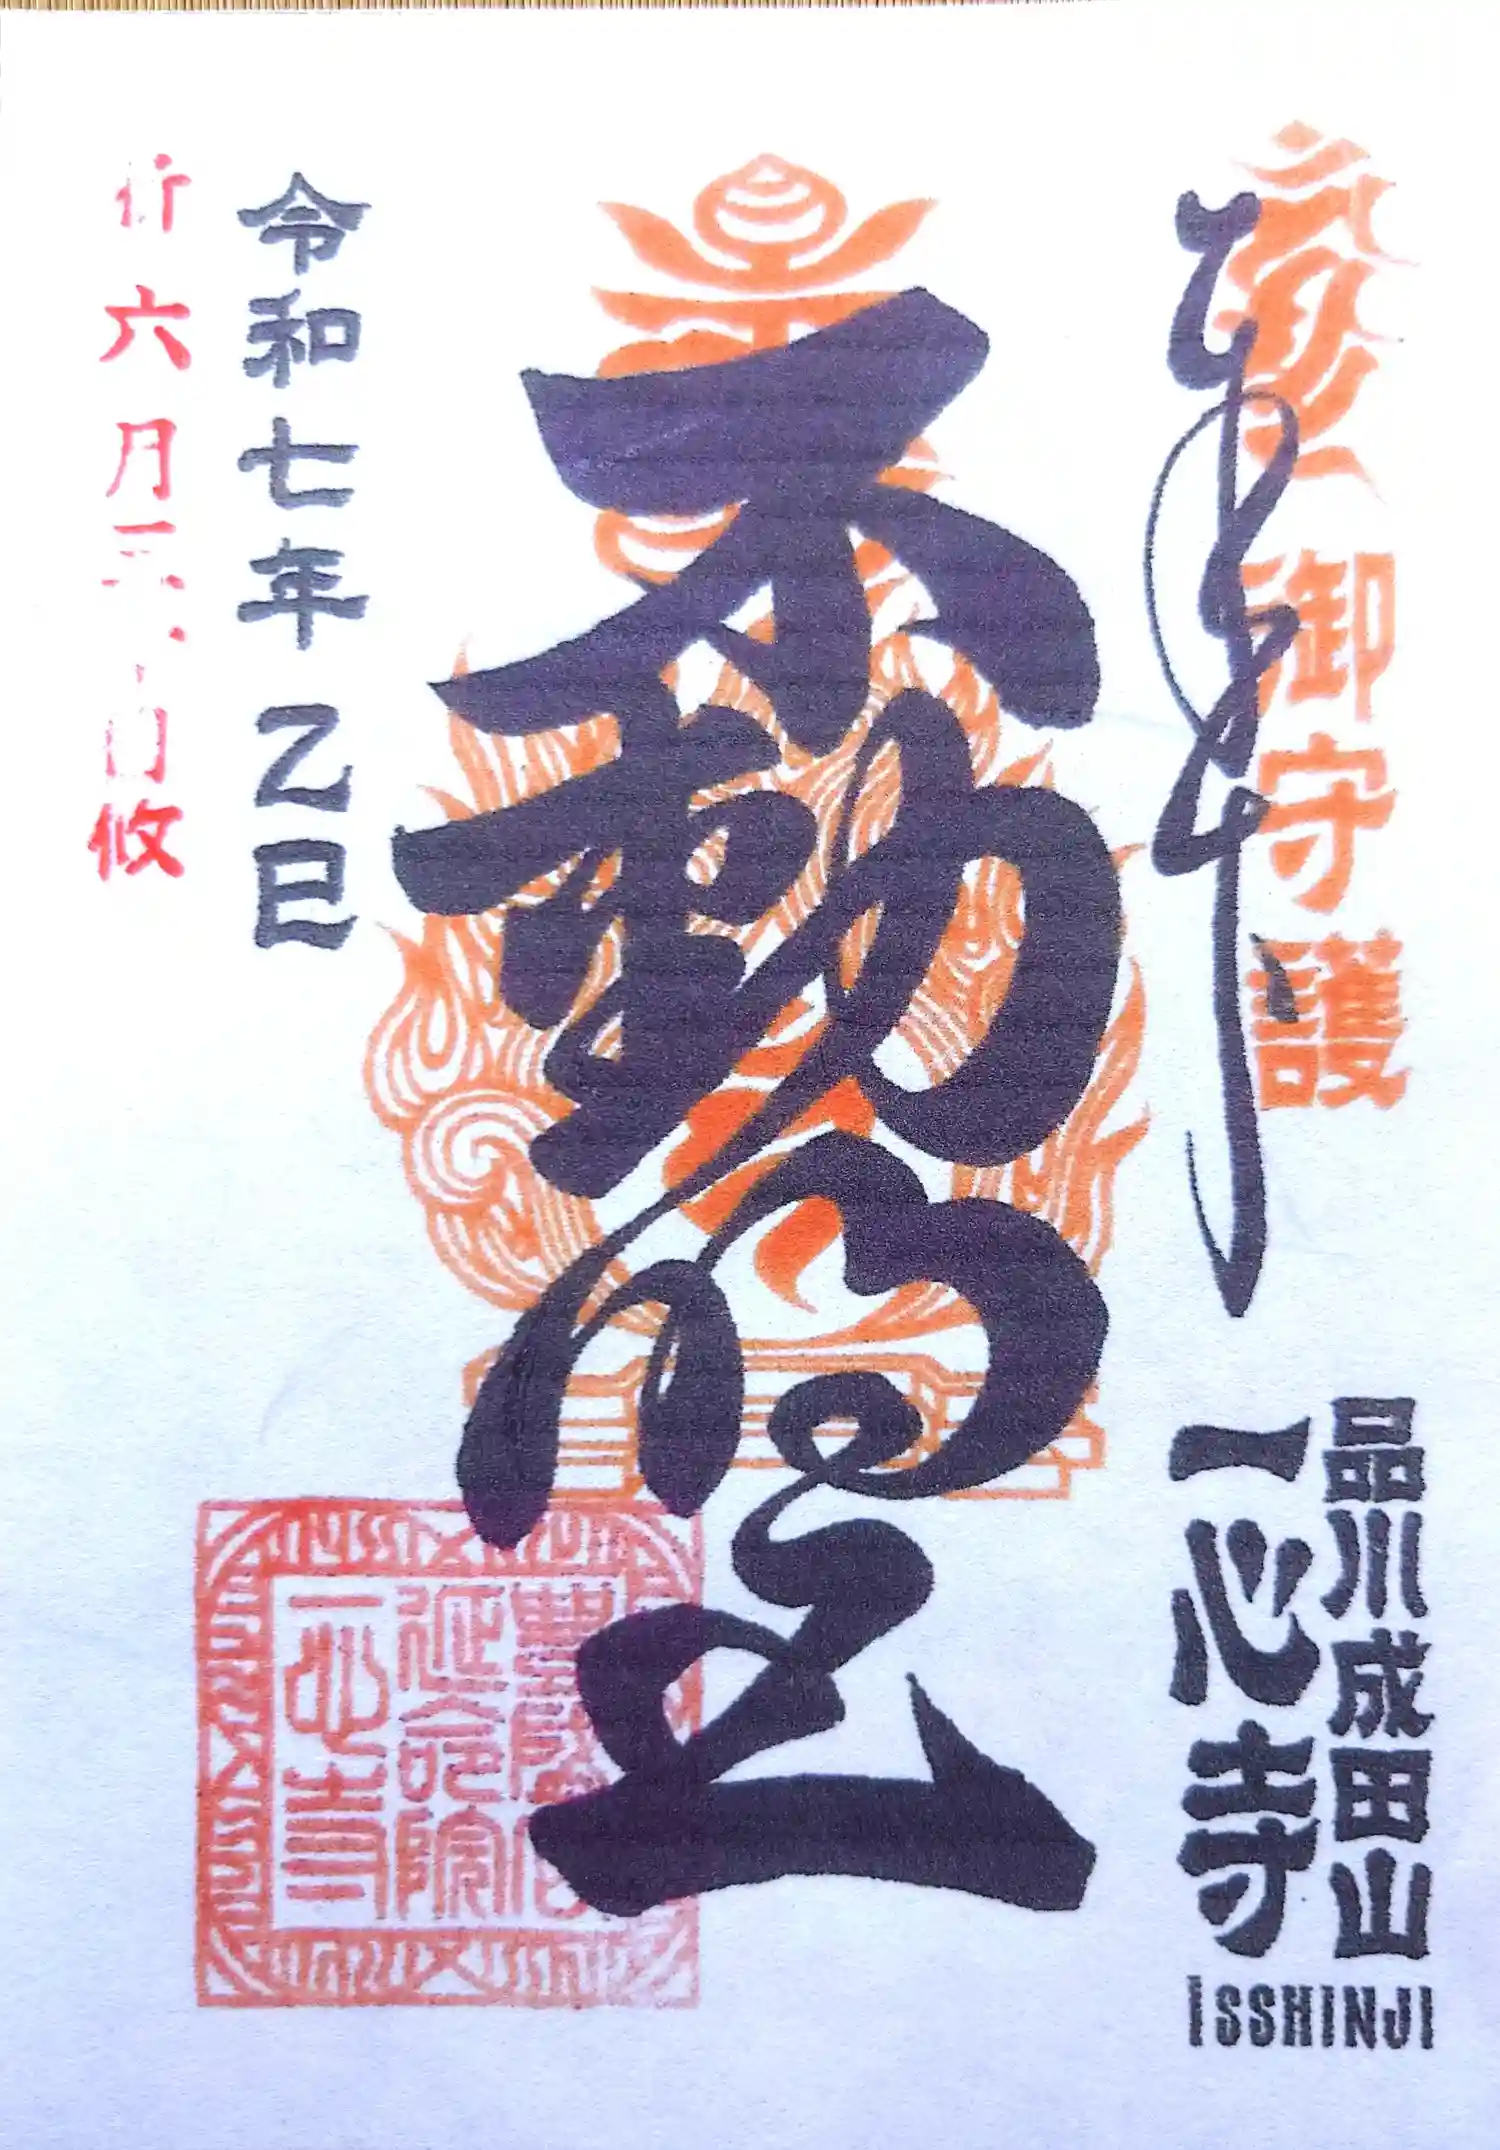 奉拝
御守護
品川成田山
一心寺
ISSHINJI
不動明王
令和七年乙巳
六月
延命院
一心寺